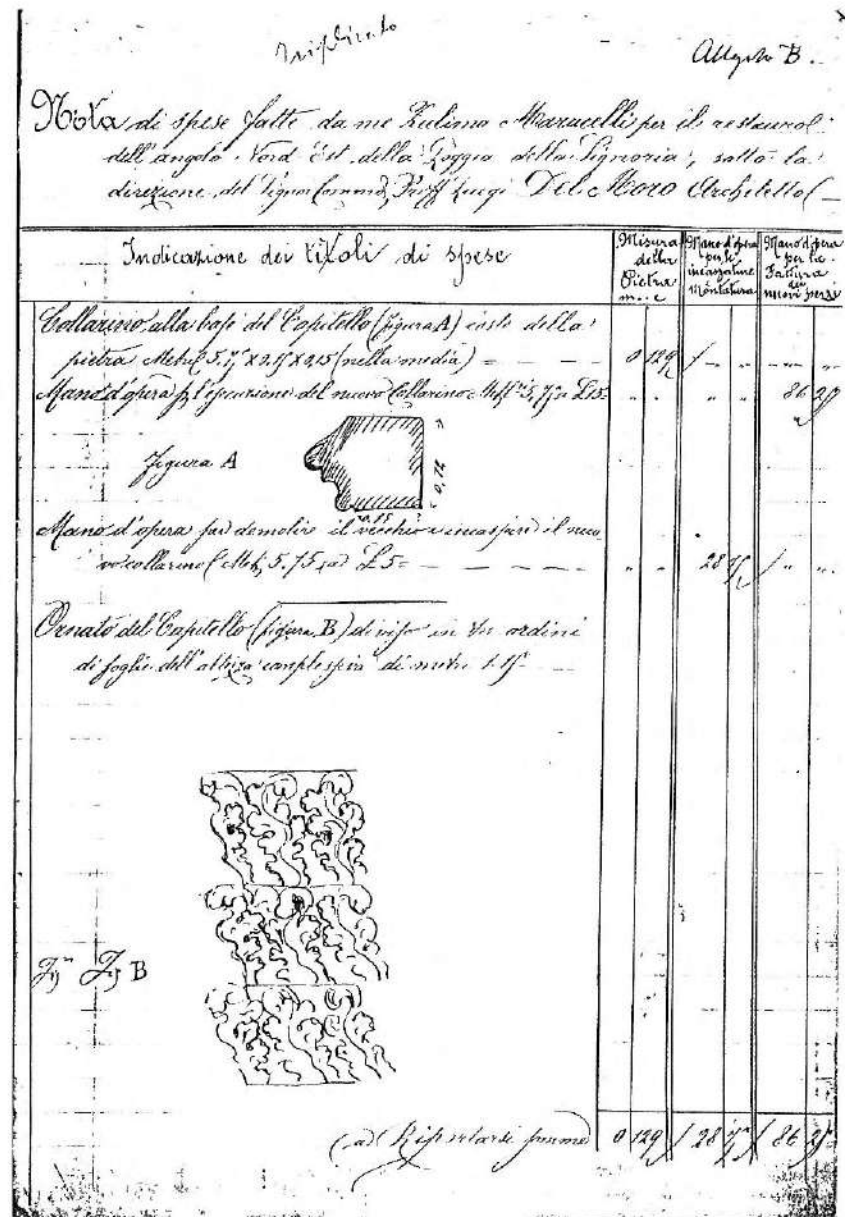 Triplicato
Allegato B.
Nota di spese fatte da me Zulimo Maracelli per il restauro
dell'angolo Nord Est della Loggia della Signoria, sotto la
direzione del Signor Commd, Proff Luigi Del Moro Architetto
Indicazione dei titoli di spese
Misura della Pietra m. c
Mano d'opera per le incassature Montatura
Mano d'opera per la Fattura dei nuovi pezzi
Collarino alla base del Capitello (figura A) costo della
pietra Met 5.75 x 0.15 x 0,15 (nella media) = 0 129
Mano d'opera p l'esecuzione del nuovo Collarino 5,75 a £15= 86 25
Figura A
0,12
0,15
Mano d'opera per demolire il vecchio e incassare il nuo
vo collarino (Met, 5.75, a £5= 28 75
Ornato del Capitello (figura B) diviso in tre ordini
di foglie dell'altezza complessiva di metri 1.15
Fig B
(a Riportarsi 0 129 28 75 86 25